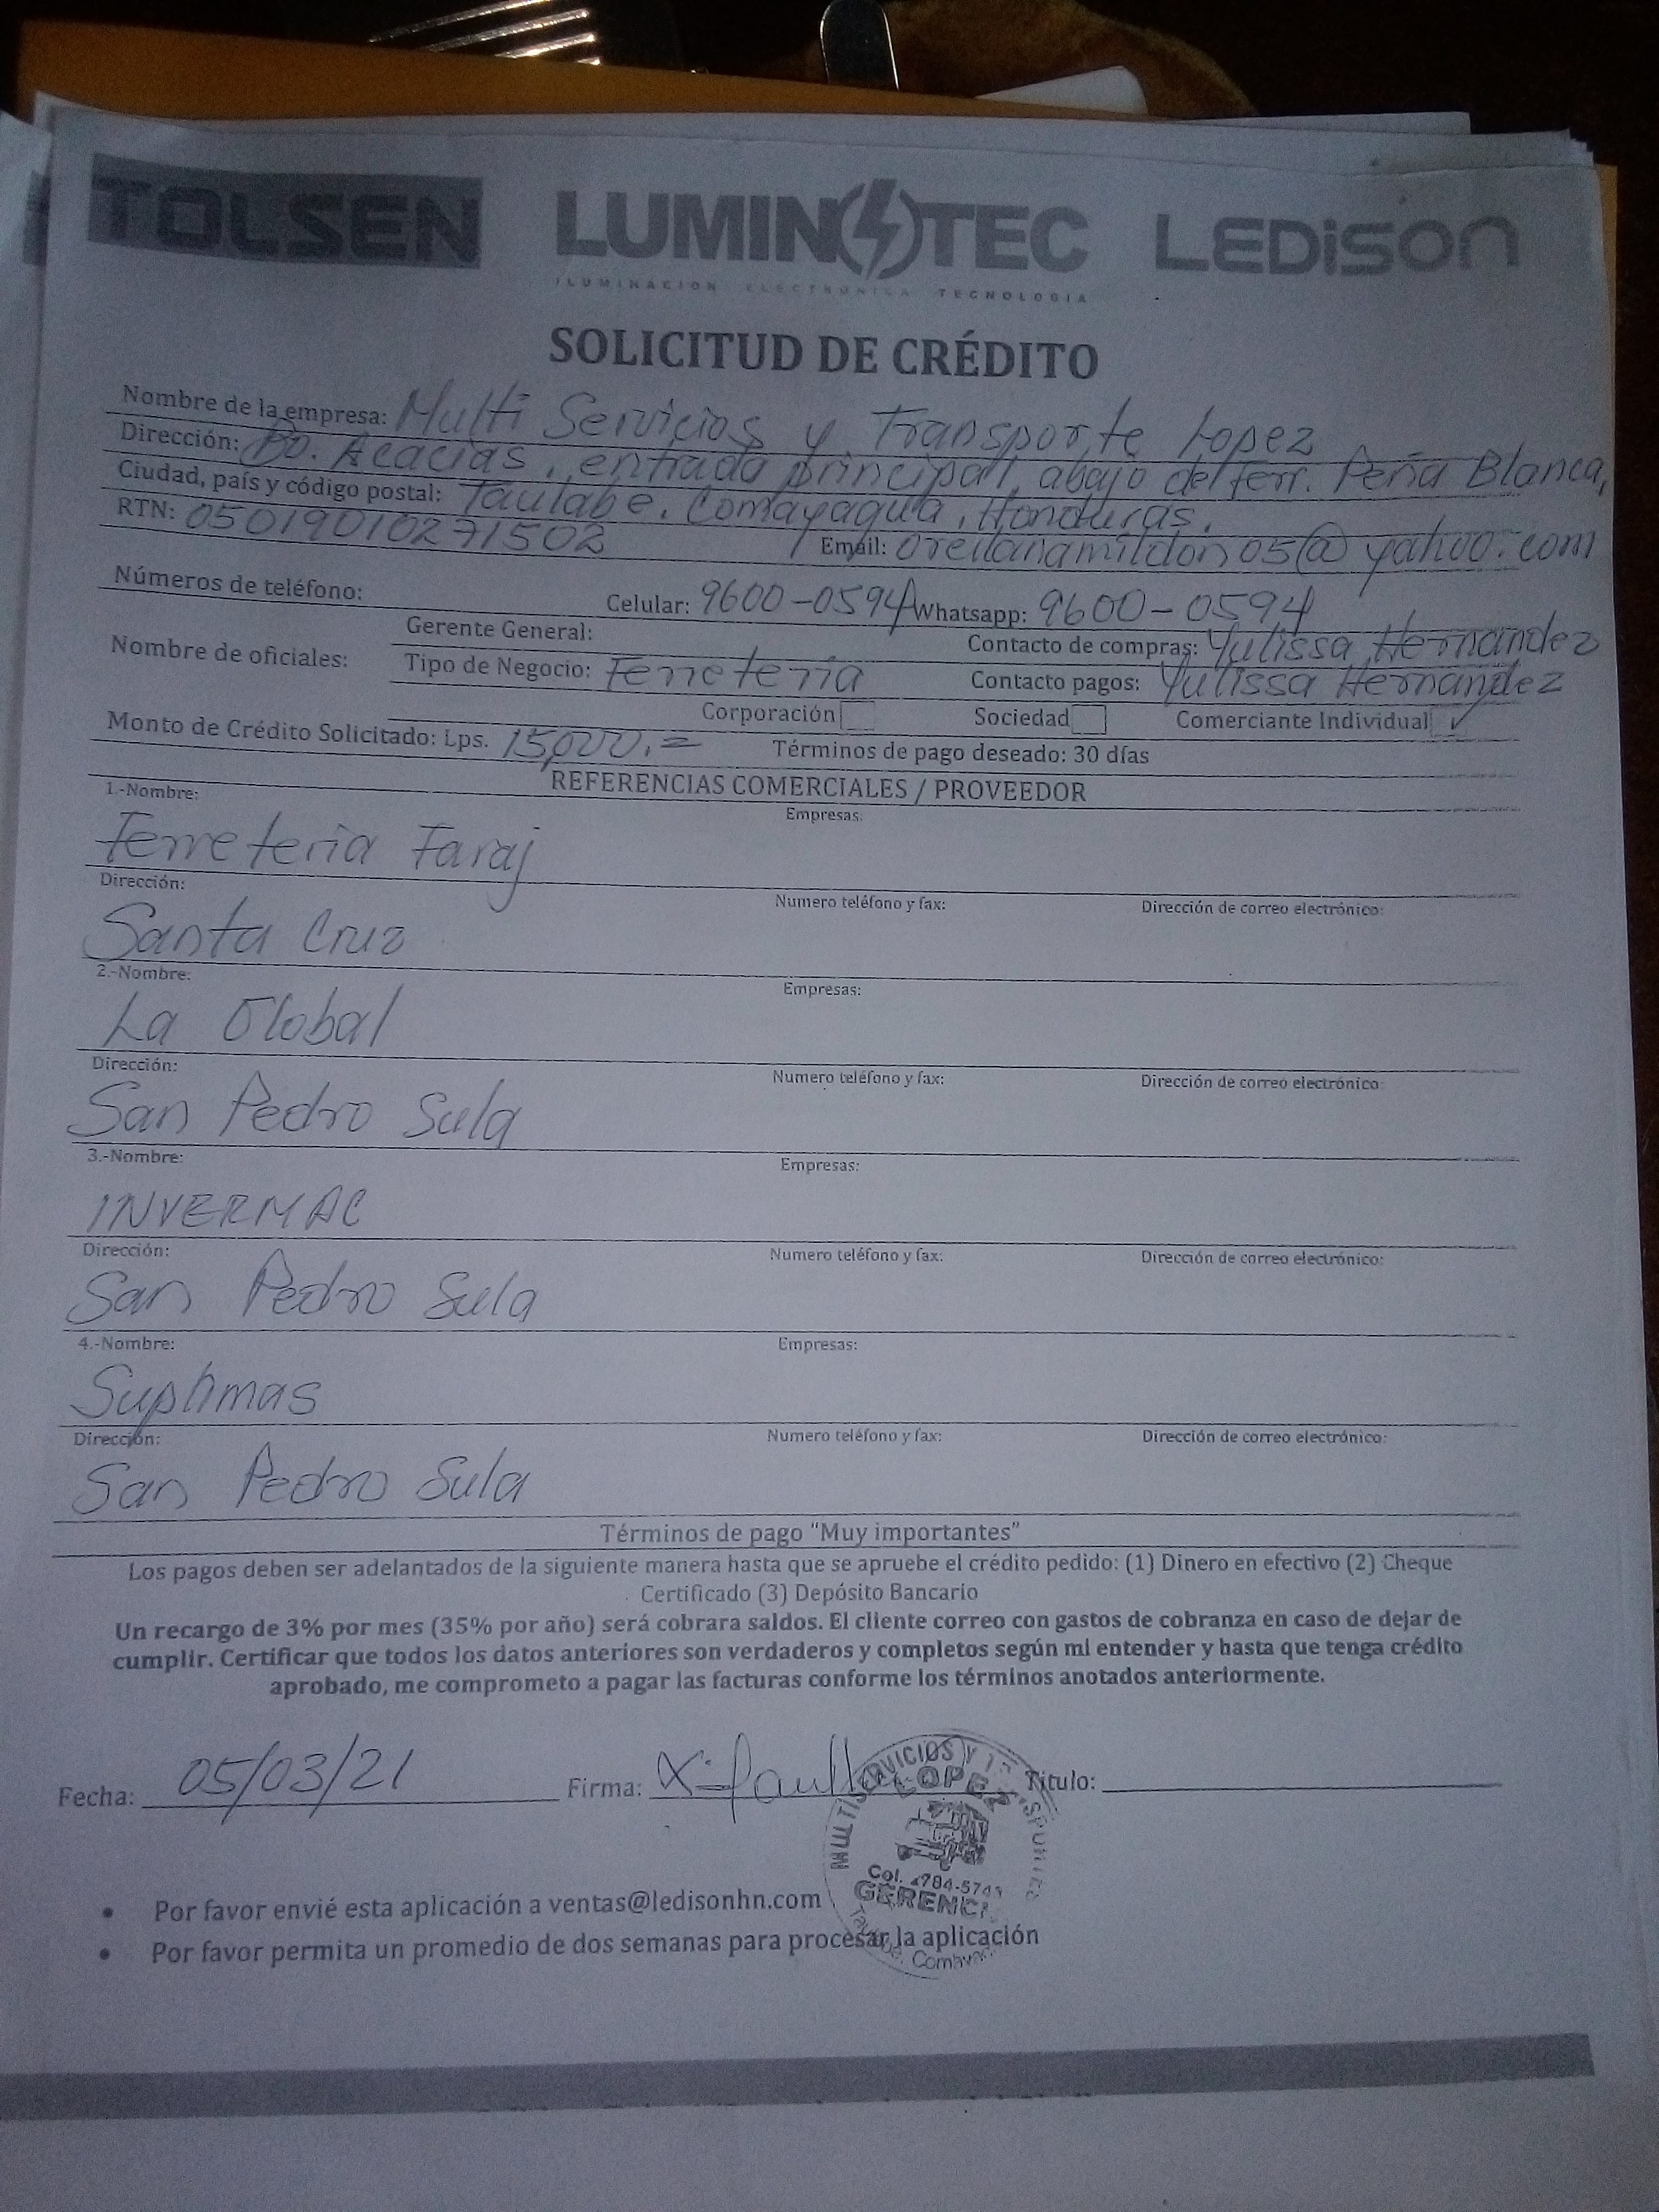 TOLSEN LUMINOTEC LEDISON
ILUMINACION ELECTRONICA TECNOLOGIA
SOLICITUD DE CRÉDITO
Nombre de la empresa: Multi Servicios y Transporte Lopez
Dirección: Bo. Acacias, entrada principal, abajo del ferr. Peña Blanca,
Ciudad, país y código postal: Taulabe, Comayagua, Honduras.
RTN: 05019010271502 Email: orellanamildon05@yahoo.com
Números de teléfono: Celular: 9600-0594 Whatsapp: 9600-0594
Gerente General: Contacto de compras: Yulissa Hernandez
Nombre de oficiales: Tipo de Negocio: Ferreteria Contacto pagos: Yulissa Hernandez
Corporación Sociedad Comerciante Individual ✓
Monto de Crédito Solicitado: Lps. 15,000.= Términos de pago deseado: 30 días
REFERENCIAS COMERCIALES / PROVEEDOR
1.-Nombre: Empresas:
Ferreteria Faraj
Dirección: Numero teléfono y fax: Dirección de correo electrónico:
Santa Cruz
2.-Nombre: Empresas:
La Global
Dirección: Numero teléfono y fax: Dirección de correo electrónico:
San Pedro Sula
3.-Nombre: Empresas:
INVERMAC
Dirección: Numero teléfono y fax: Dirección de correo electrónico:
San Pedro Sula
4.-Nombre: Empresas:
Dirección: Numero teléfono y fax: Dirección de correo electrónico:
San Pedro Sula
Términos de pago "Muy importantes"
Los pagos deben ser adelantados de la siguiente manera hasta que se apruebe el crédito pedido: (1) Dinero en efectivo (2) Cheque
Certificado (3) Depósito Bancario
Un recargo de 3% por mes (35% por año) será cobrara saldos. El cliente correo con gastos de cobranza en caso de dejar de
cumplir. Certificar que todos los datos anteriores son verdaderos y completos según mi entender y hasta que tenga crédito
aprobado, me comprometo a pagar las facturas conforme los términos anotados anteriormente.
Fecha: 05/03/21 Firma: X Titulo:
MULTISERVICIOS Y
LOPEZ
Col.
GERENCI
• Por favor envié esta aplicación a ventas@ledisonhn.com
• Por favor permita un promedio de dos semanas para procesar la aplicación